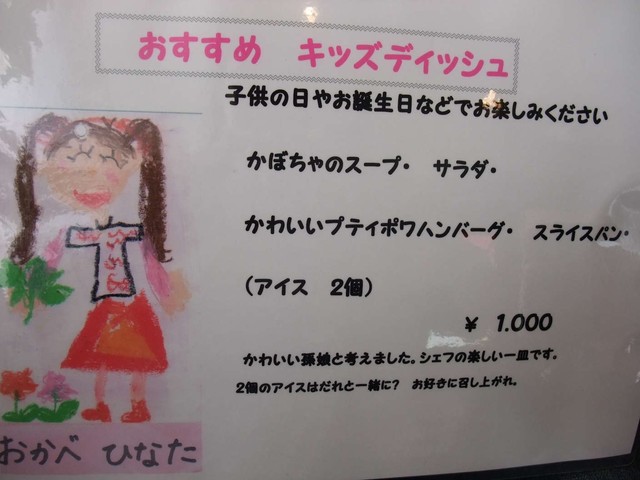 おすすめ　キッズディッシュ
子供の日やお誕生日などでお楽しみください
かぼちゃのスープ・　サラダ・
かわいいプティポワハンバーグ・　スライスパン・
（アイス　2個）
¥ 1.000
かわいい孫娘と考えました。シェフの楽しい一皿です。
2個のアイスはだれと一緒に？　お好きに召し上がれ。
おかべ ひなた